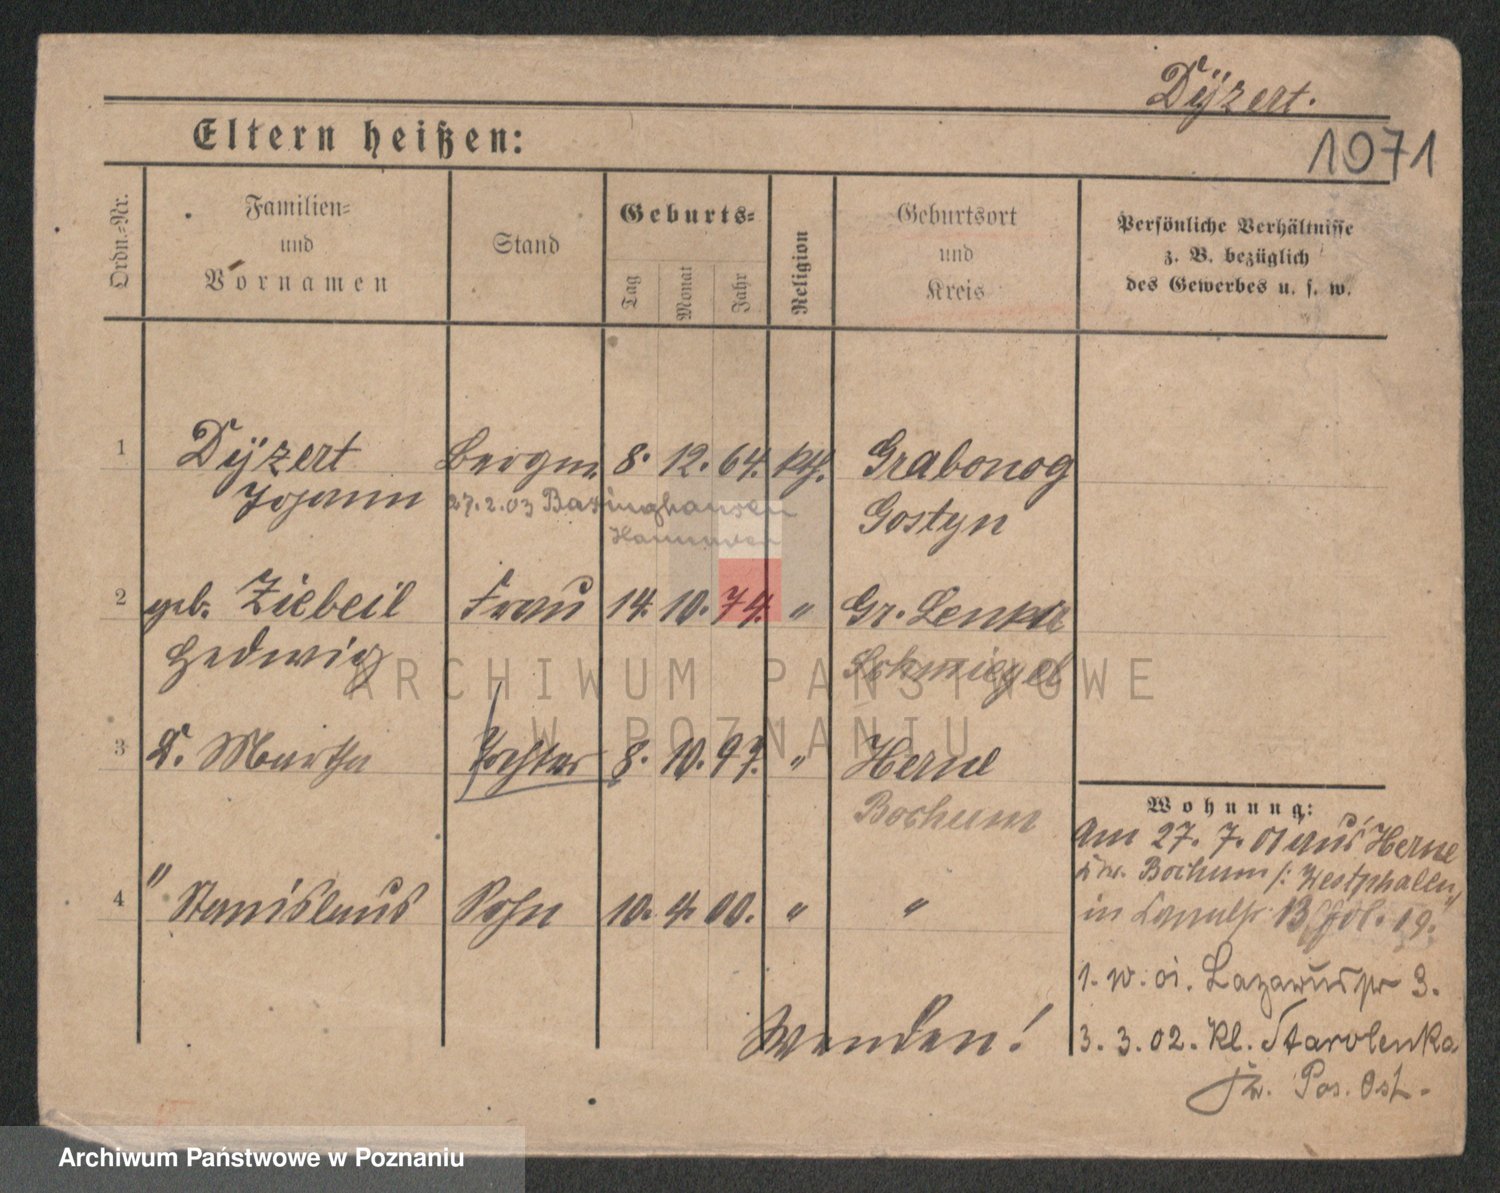 Dÿzert.
1071
Eltern heißen:
Ordn.-Nr.
Familien-
und
Vornamen
Stand
Geburts-
Tag
Monat
Jahr
Religion
Geburtsort
und
Kreis
Persönliche Verhältnisse
z. B. bezüglich
des Gewerbes u. s. w.
1 Dÿzert Bergm. 8. 12. 64. kth. Grabonog
Johann Gostyn
27.2.03 Barsinghausen
Hannover
2 geb. Ziebeil Frau 14. 10. 74. " Gr. Lenka
Hedwig Schmiegel
3 D. Martha Tochter 8. 10. 97. " Herne
Bochum
4 " Stanislaus Sohn 10. 4. 00. " "
Wenden!
Wohnung:
Am 27. 7. 01 aus Herne
Bochum /: Westphalen
in 13 19.
1. 10. 01. Lazarusstr 3.
3. 3. 02. Kl. Starolenka
Kr. Pos. Ost.
ARCHIWUM PAŃSTWOWE
W POZNANIU
Archiwum Państwowe w Poznaniu